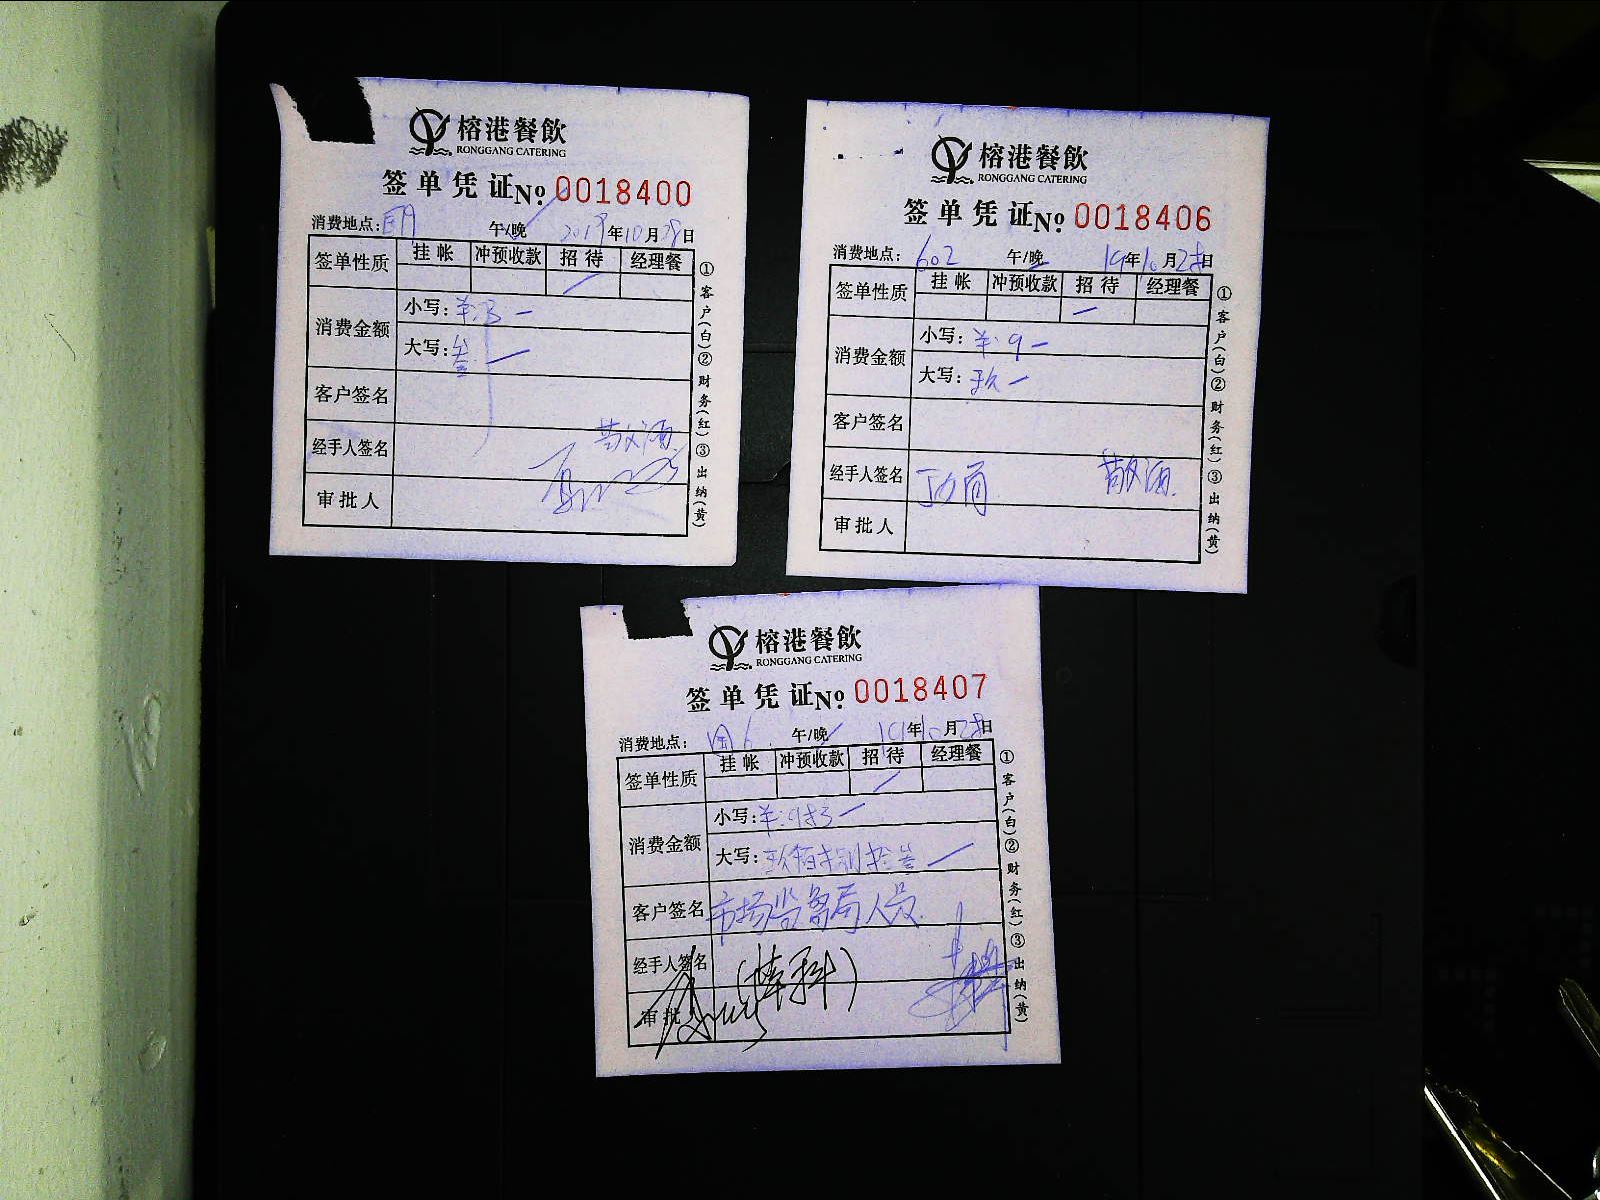 榕港餐飲
RONGGANG CATERING
签单凭证 No 0018400
消费地点: 午/晚 2019年10月 日
签单性质 挂帐 冲预收款 招待 经理餐
消费金额 小写: 羊:3一
大写: 叁
客户签名
经手人签名 敬酒
审批人
①客户(白)②财务(红)③出纳(黄)
榕港餐飲
RONGGANG CATERING
签单凭证 No 0018406
消费地点: 602 午/晚 19年10月 日
签单性质 挂帐 冲预收款 招待 经理餐
消费金额 小写: 羊:9一
大写: 玖一
客户签名
经手人签名 敬酒
审批人
①客户(白)②财务(红)③出纳(黄)
榕港餐飲
RONGGANG CATERING
签单凭证 No 0018407
消费地点: 午/晚 19年10月 日
签单性质 挂帐 冲预收款 招待 经理餐
消费金额 小写:
大写: 玖佰 拾叁
客户签名 市场监督局人员
经手人签名
审批人
①客户(白)②财务(红)③出纳(黄)